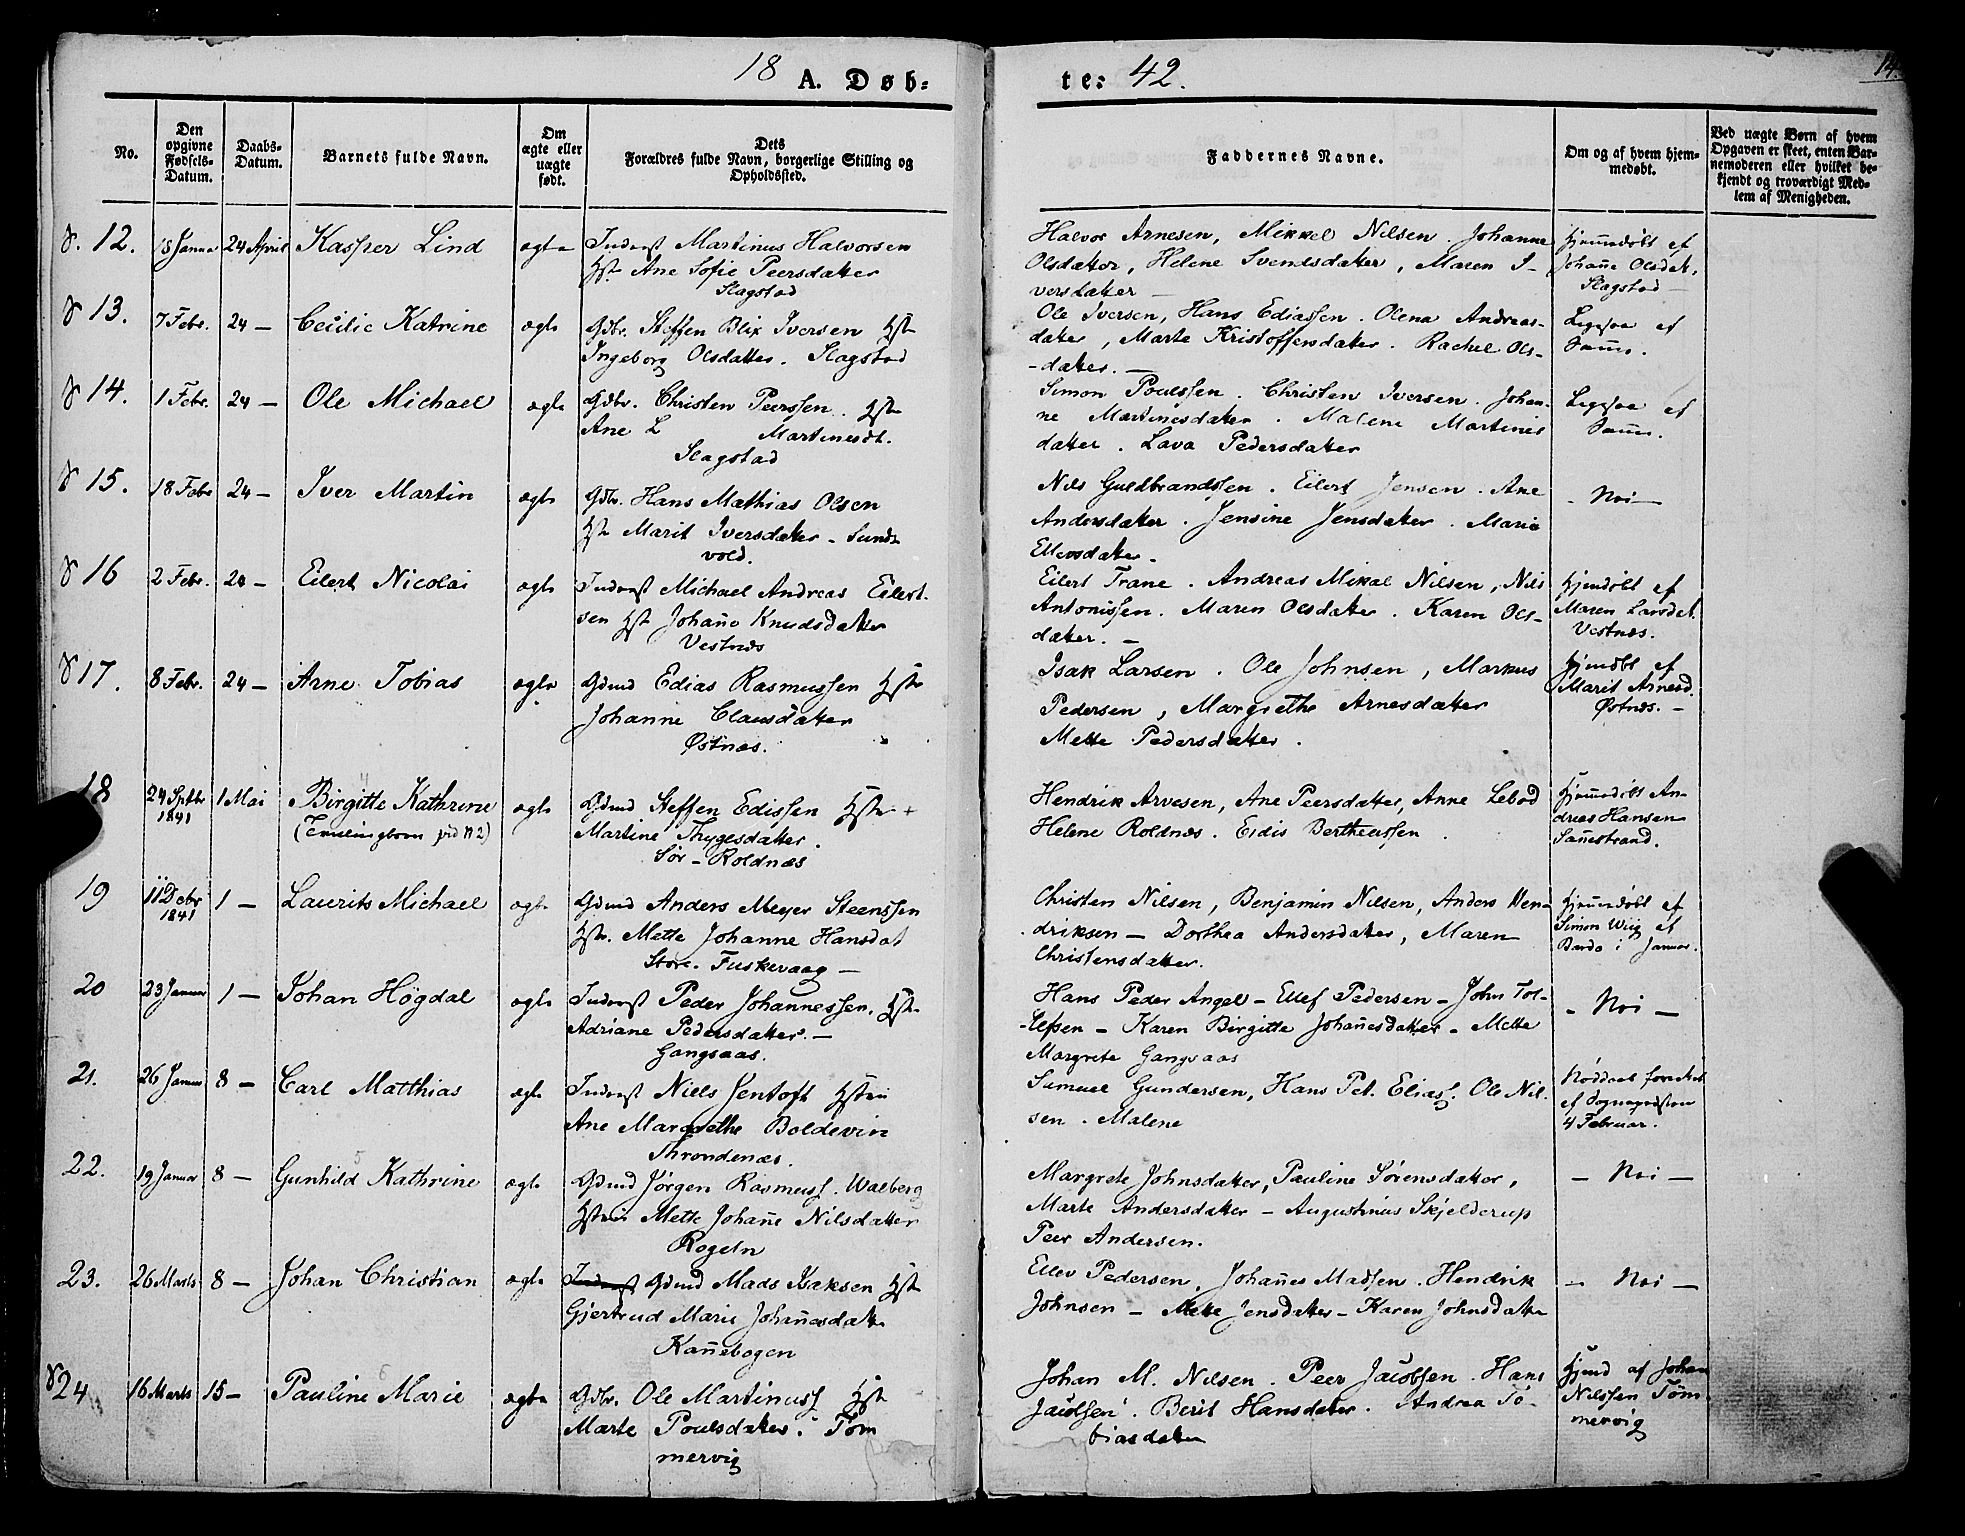 18 A. Døb-
te: 42.
14
No.
Den opgivne Fødsels-Datum.
Daabs-Datum.
Barnets fulde Navn.
Om ægte eller uægte født.
Dets Forældres fulde Navn, borgerlige Stilling og Opholdssted.
Faddernes Navne.
Om og af hvem hjem-medøbt.
Ved uægte Børn af hvem Opgaven er skeet, enten Bar-nemoderen eller hvilket be-kjendt og troværdigt Med-lem af Menigheden.
12. 24 April Kasper Lind ægte Inderst Martinus Halvorsen
Hst. Ane Sofie Peersdatter
Slagstad
Halvor Arnesen, Mikkel Nilsen. Johanne
Olsdatter, Helene Svendsdatter, Maren I-
versdatter —
Hjemmedøbt af
Johañe Olsdat.
Slagstad —
13. 7 Febr. 24 — Cecilie Katrine ægte Gdbr. Steffen Blix Iversen Hst
Ingeborg Olsdatter. Slagstad
Ole Iversen, Hans Ediassen. Olena Andreas-
datter, Marte Kristoffersdatter. Rachel Ols-
-datter. —
Ligesaa af
Samme.
14. 1 Febr. 24 — Ole Michael ægte Gdbr. Christen Peerssen. Hst
Ane L Martinesdt.
Slagstad
Simon Poulssen. Christen Iversen. Johan-
ne Martinesdatter. Malene Martines
datter. Lava Pedersdatter
Ligesaa af
Samme.
15. 18 Febr 24 — Iver Martin ægte Gdbr. Hans Mathias Olsen
Hst Marit Iversdatter — Sands
vold.
Nils Guldbrandssen. Eilert Jensen. Ane
Andersdatter. Jensine Jensdatter. Marie
Ellevsdatter —
— Nei —
16 2 Febr. 24 — Eilert Nicolai ægte Inderst Michael Andreas Eilert-
sen Hst Johañe Knudsdatter
Vestnæs
Eilert Trane. Andreas Mikal Nilsen, Nils
Antonissen. Maren Olsdatter. Karen Ols-
datter. —
Hjemdøbt af
Maren Larsdat.
Vestnæs.
17. 8 Febr. 24 — Arne Tobias ægte Gdmd Edias Rasmussen Hst
Johanne Clausdatter
Østnæs.
Isak Larsen. Ole Johnsen, Markus
Pedersen, Margrethe Arnesdatter
Mette Pedersdatter.
Hjemdbt af
Marit Arnesd.
Østnæs. —
18 24 Sptbr 1841 1 Mai Birgitte Kathrine ægte Gdmd Steffen Edissen Hstr
(Tvillingbarn vid N 2) Martine Thygesdatter.
Sør-Roldnæs
Hendrik Arvesen, Ane Peersdatter, Anne Lebod
Helene Roldnæs. Eidis Bertheussen
Hjemmedøbt An-
dreas Hansen
Sañestrand.
19 11 Debr 1841 1 — Laurits Michael ægte Gdmd Anders Meyer Steenssen
Hstr. Mette Johanne Hansdat
Store. Fuskevaag —
Christen Nilsen, Benjamin Nilsen, Anders Hen-
driksen — Dorthea Andersdatter, Maren
Christensdatter.
Hjemmedøbt af
Simon Wiig af
Bardo i Januar.
20 23 Januar 1 — Johan Högdal ægte Inderst Peder Johannessen, Hst-
Adriane Pedersdatter. —
Gangsaas.
Hans Peder Angel — Ellef Pedersen — John Tol-
-lefsen — Karen Birgitte Johañesdatter — Mette
Margrete Gangsaas
— Nei —
21. 26 Januar 8 — Carl Matthias ægte Inderst Niels Jentoft Hstrü
Ane Margrethe Boldevin
Throndenæs.
Samuel Gundersen, Hans Pet. Elias. Ole Nil-
sen. Malene
Nøddaab forrettet
af Sognepræsten
4 Februar.
22. 19 Januar 8 — Gunhild Kathrine ægte Gdmd Jørgen Rasmuss. Walberg
Hstrü Mette Johañe Nilsdatter
Rogeln
Margrete Johnsdatter, Pauline Sörensdatter,
Marte Andersdatter — Augustinus Skjelderup
Peer Andersen.
— Nei —
23. 26 Marts 8 — Johan Christian ægte Inderst Gdmd Mads Isaksen Hst
Gjertrud Marie Johañesdatt
Kañebogen
Ellev Pedersen, Johañes Madsen. Hendrik
Johnsen — Mette Jensdatter — Karen Johnsdatter
— Nei —
24 16 Marts 15 — Pauline Marie ægte Gdbr. Ole Martinuss Hst
Marte Poulsdatter. Töm
mervig
Johan M. Nilsen. Peer Jacobsen. Hans
Jacobsen. Berit Hansdatter. Andrea To-
biasdatter
Hjemd af Johan
Nilssen Tøm-
mervig